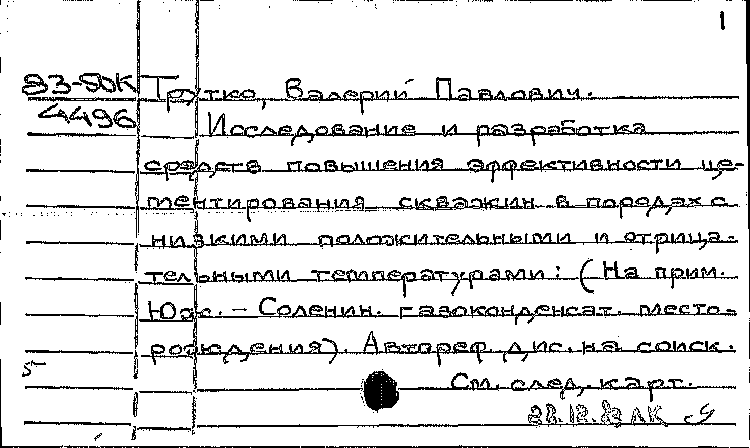 1
83-50К Трутко, Валерий Павлович.
4496 Исследование и разработка
средств повышения эффективности це-
ментирования скважин в породах с
низкими положительными и отрица-
тельными температурами: (На прим.
Юж. - Соленин. газоконденсат. место-
рождения). Автореф. дис. на соиск.
5
См. след. карт.